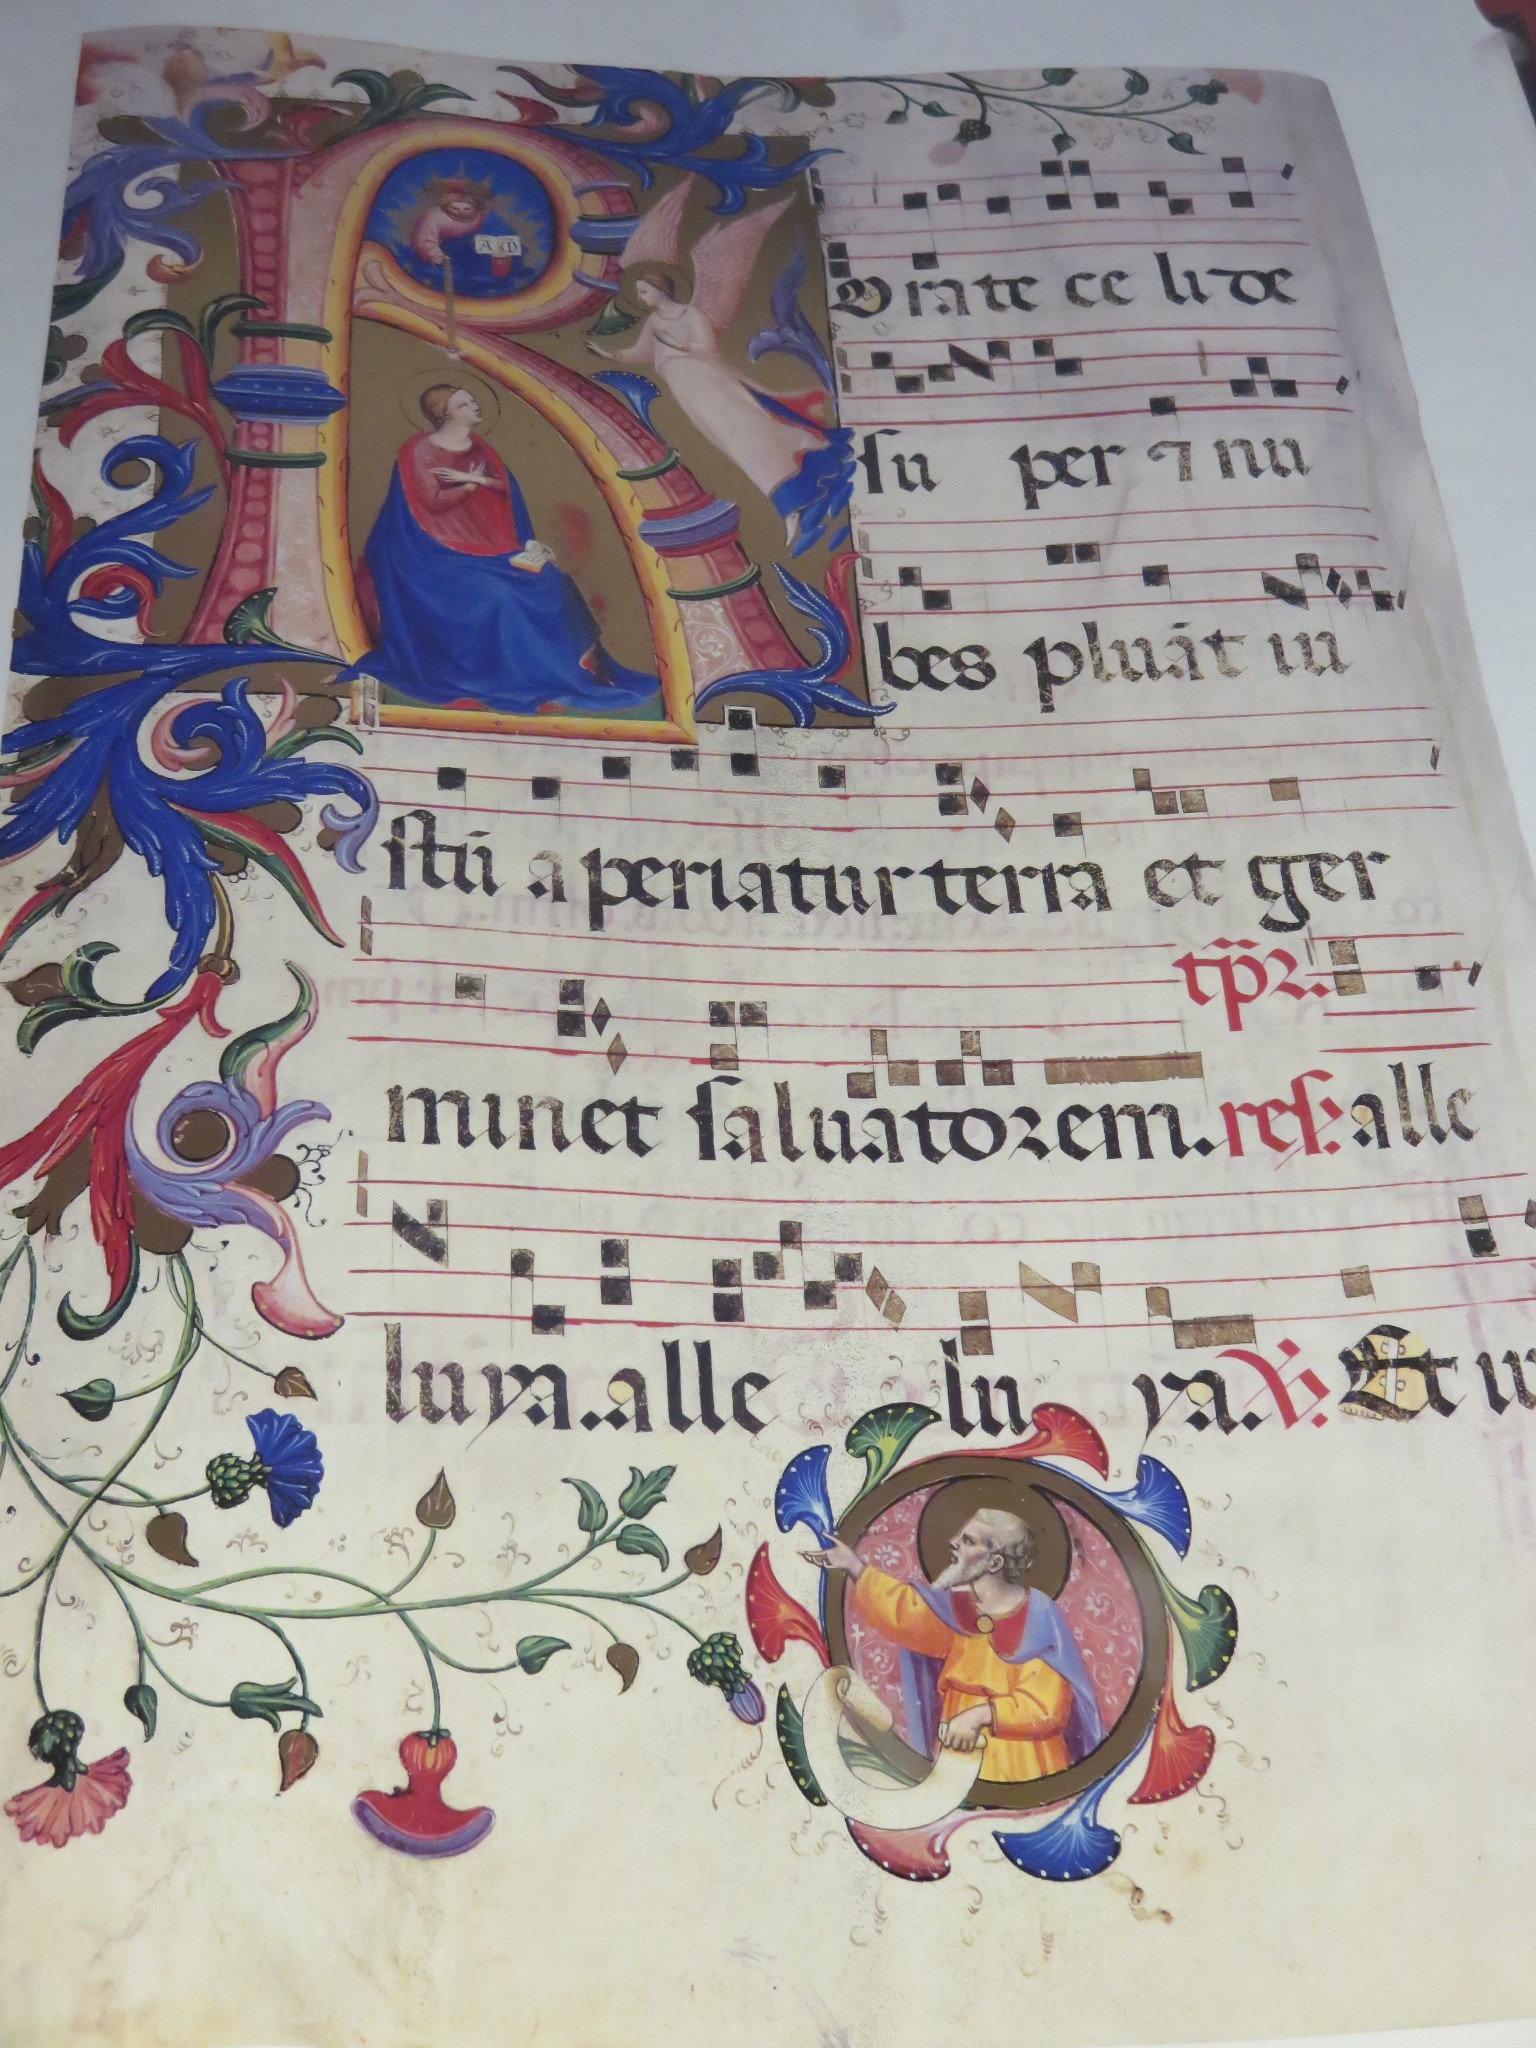 A ω
R Orate celi de
su per ⁊ nu
bes pluāt iu
stū aperiatur terra et ger
tp̄r.
minet salvatorem. res. alle
luya. alle lu ya. V. Et iu